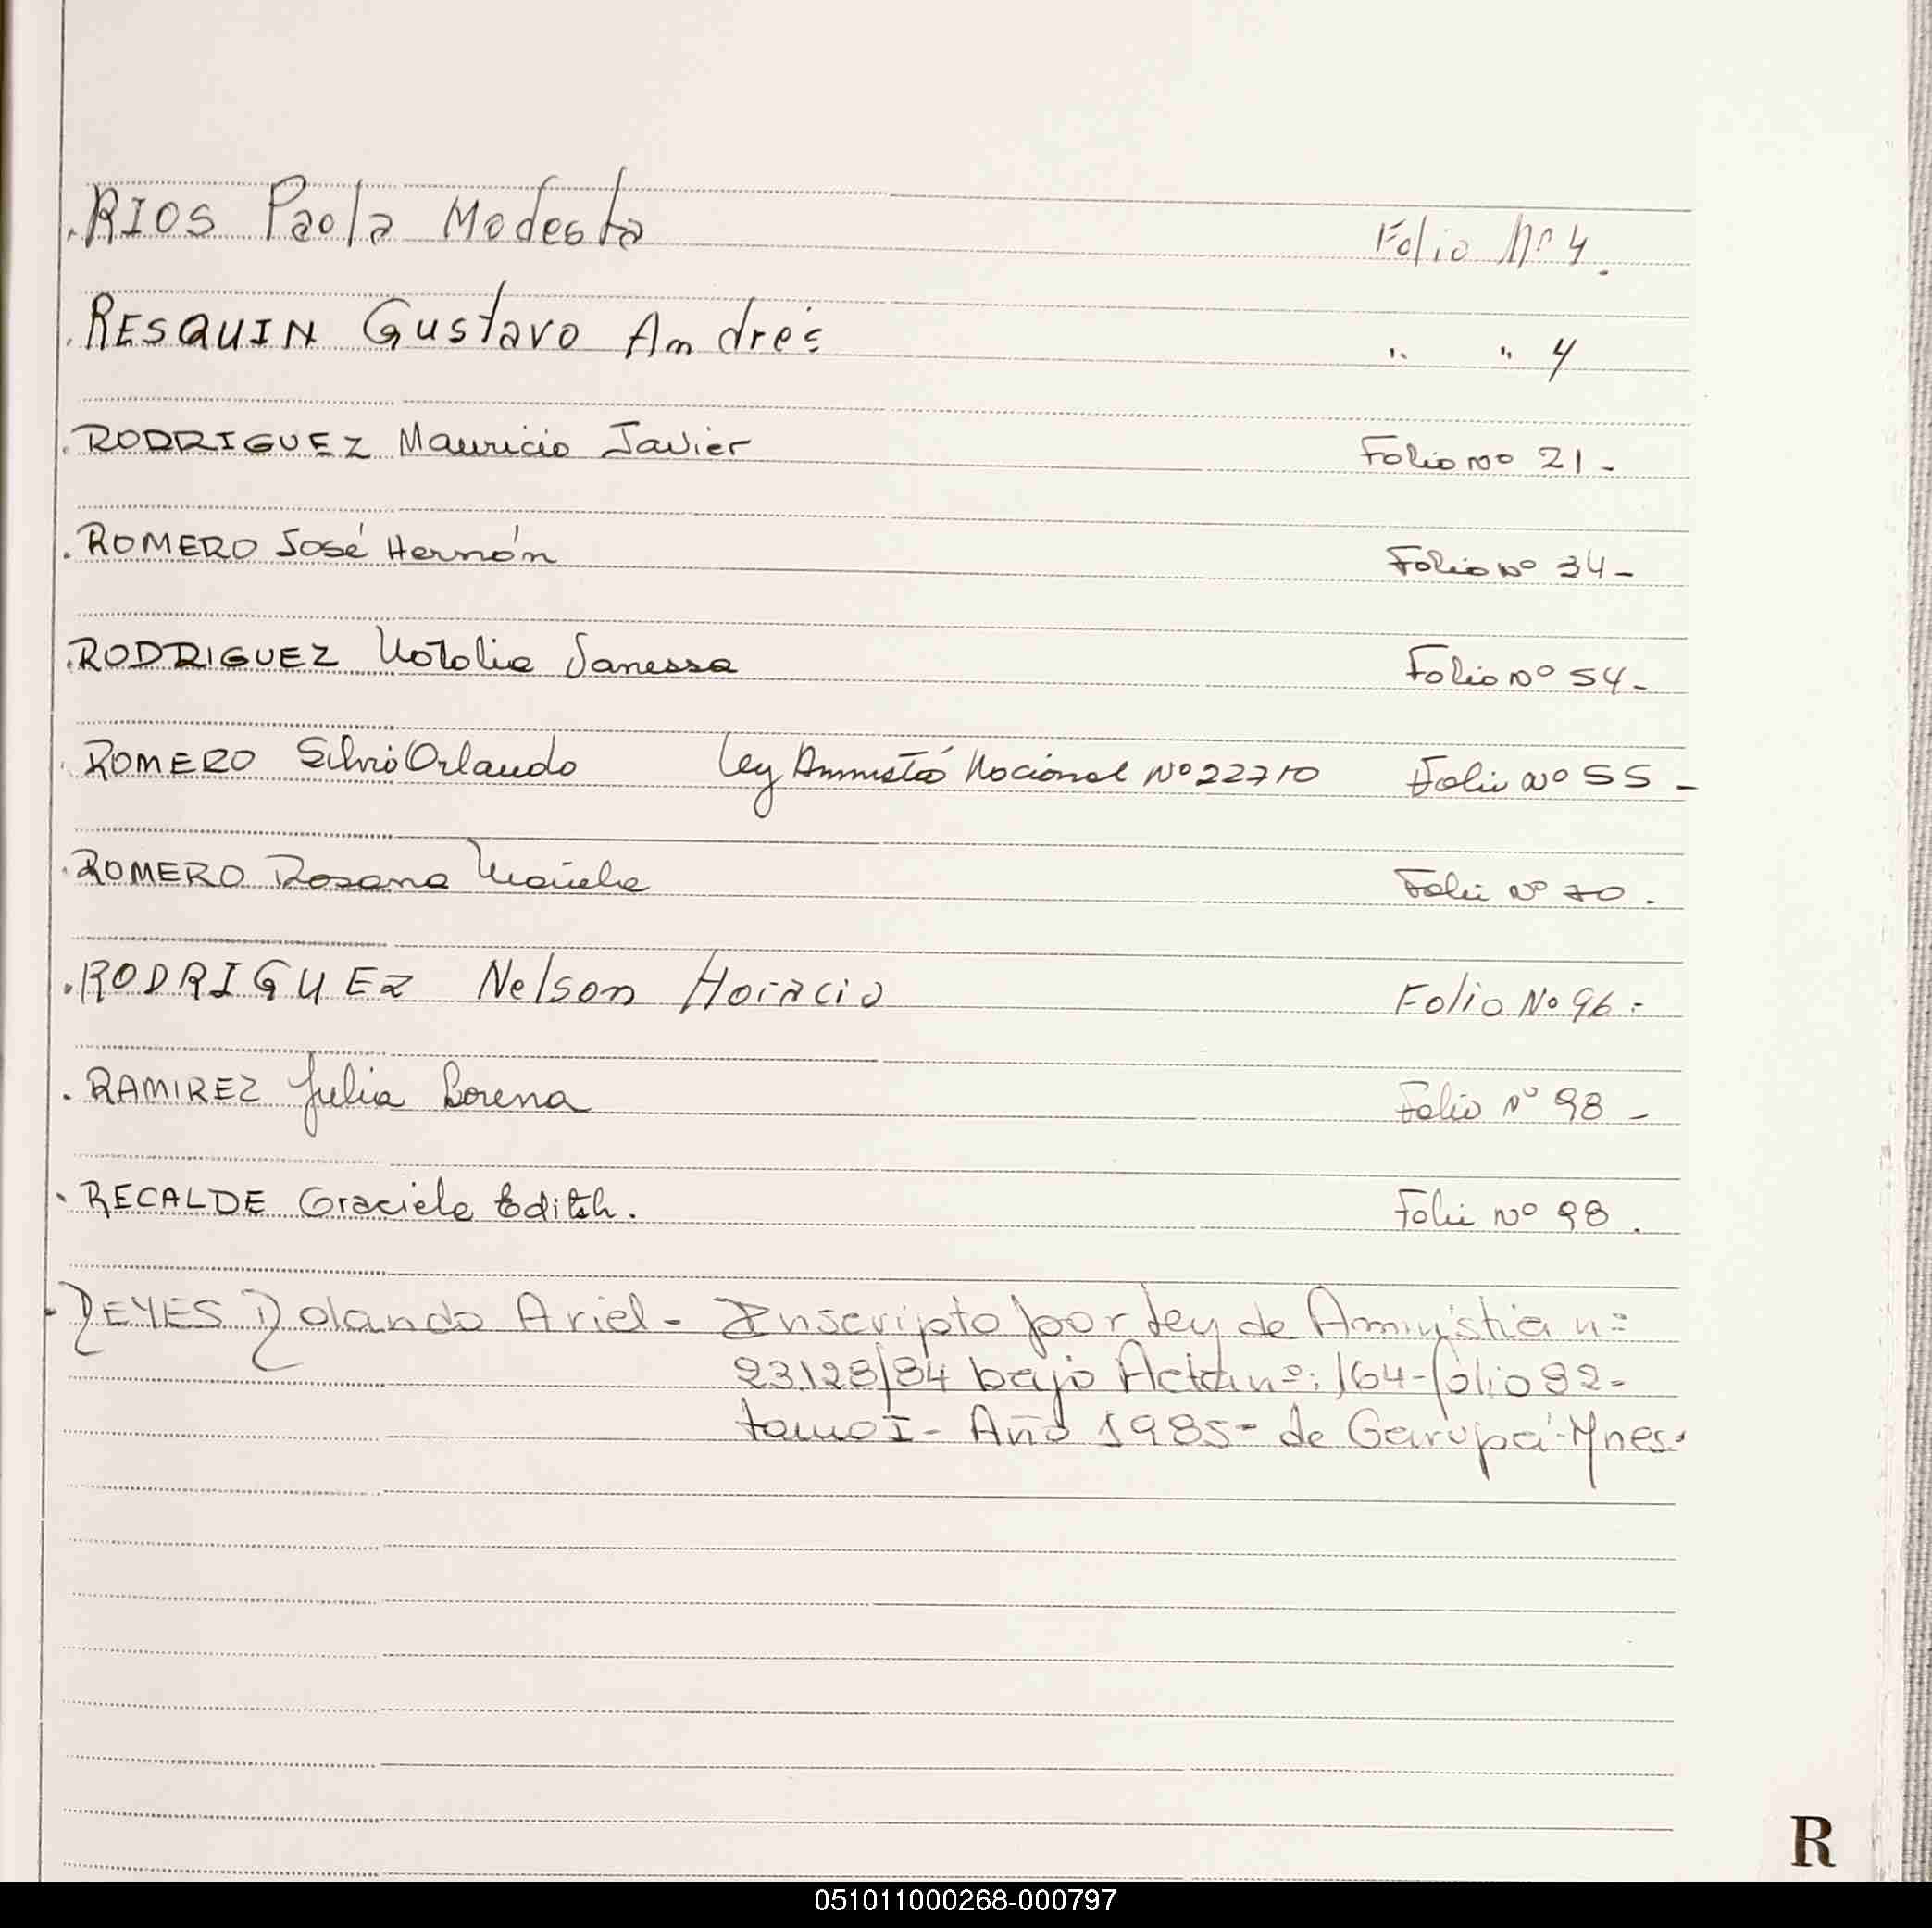 . RIOS Paola Modesta Folio Nº 4.
. RESQUIN Gustavo Andrés " " 4
. RODRIGUEZ Mauricio Javier Folio nº 21-
. ROMERO José Hernón Folio Nº 34-
. RODRIGUEZ Natalia Vanessa Folio Nº 54-
. ROMERO Silvio Orlando Ley Amnistía Nacional Nº 22710 Folio Nº 55-
. ROMERO Rosana Folio Nº 70.
. RODRIGUEZ Nelson Horacio Folio Nº 96-
. RAMIREZ Julia Lorena Folio Nº 98-
. RECALDE Graciela Edith. Folio Nº 98.
- REYES Rolando Ariel - Inscripto por Ley de Amnistía nº
23.128/84 bajo Acta nº: 164-folio 82-
tomo I- Año 1985- de Garupá-Mnes.
R
051011000268-000797